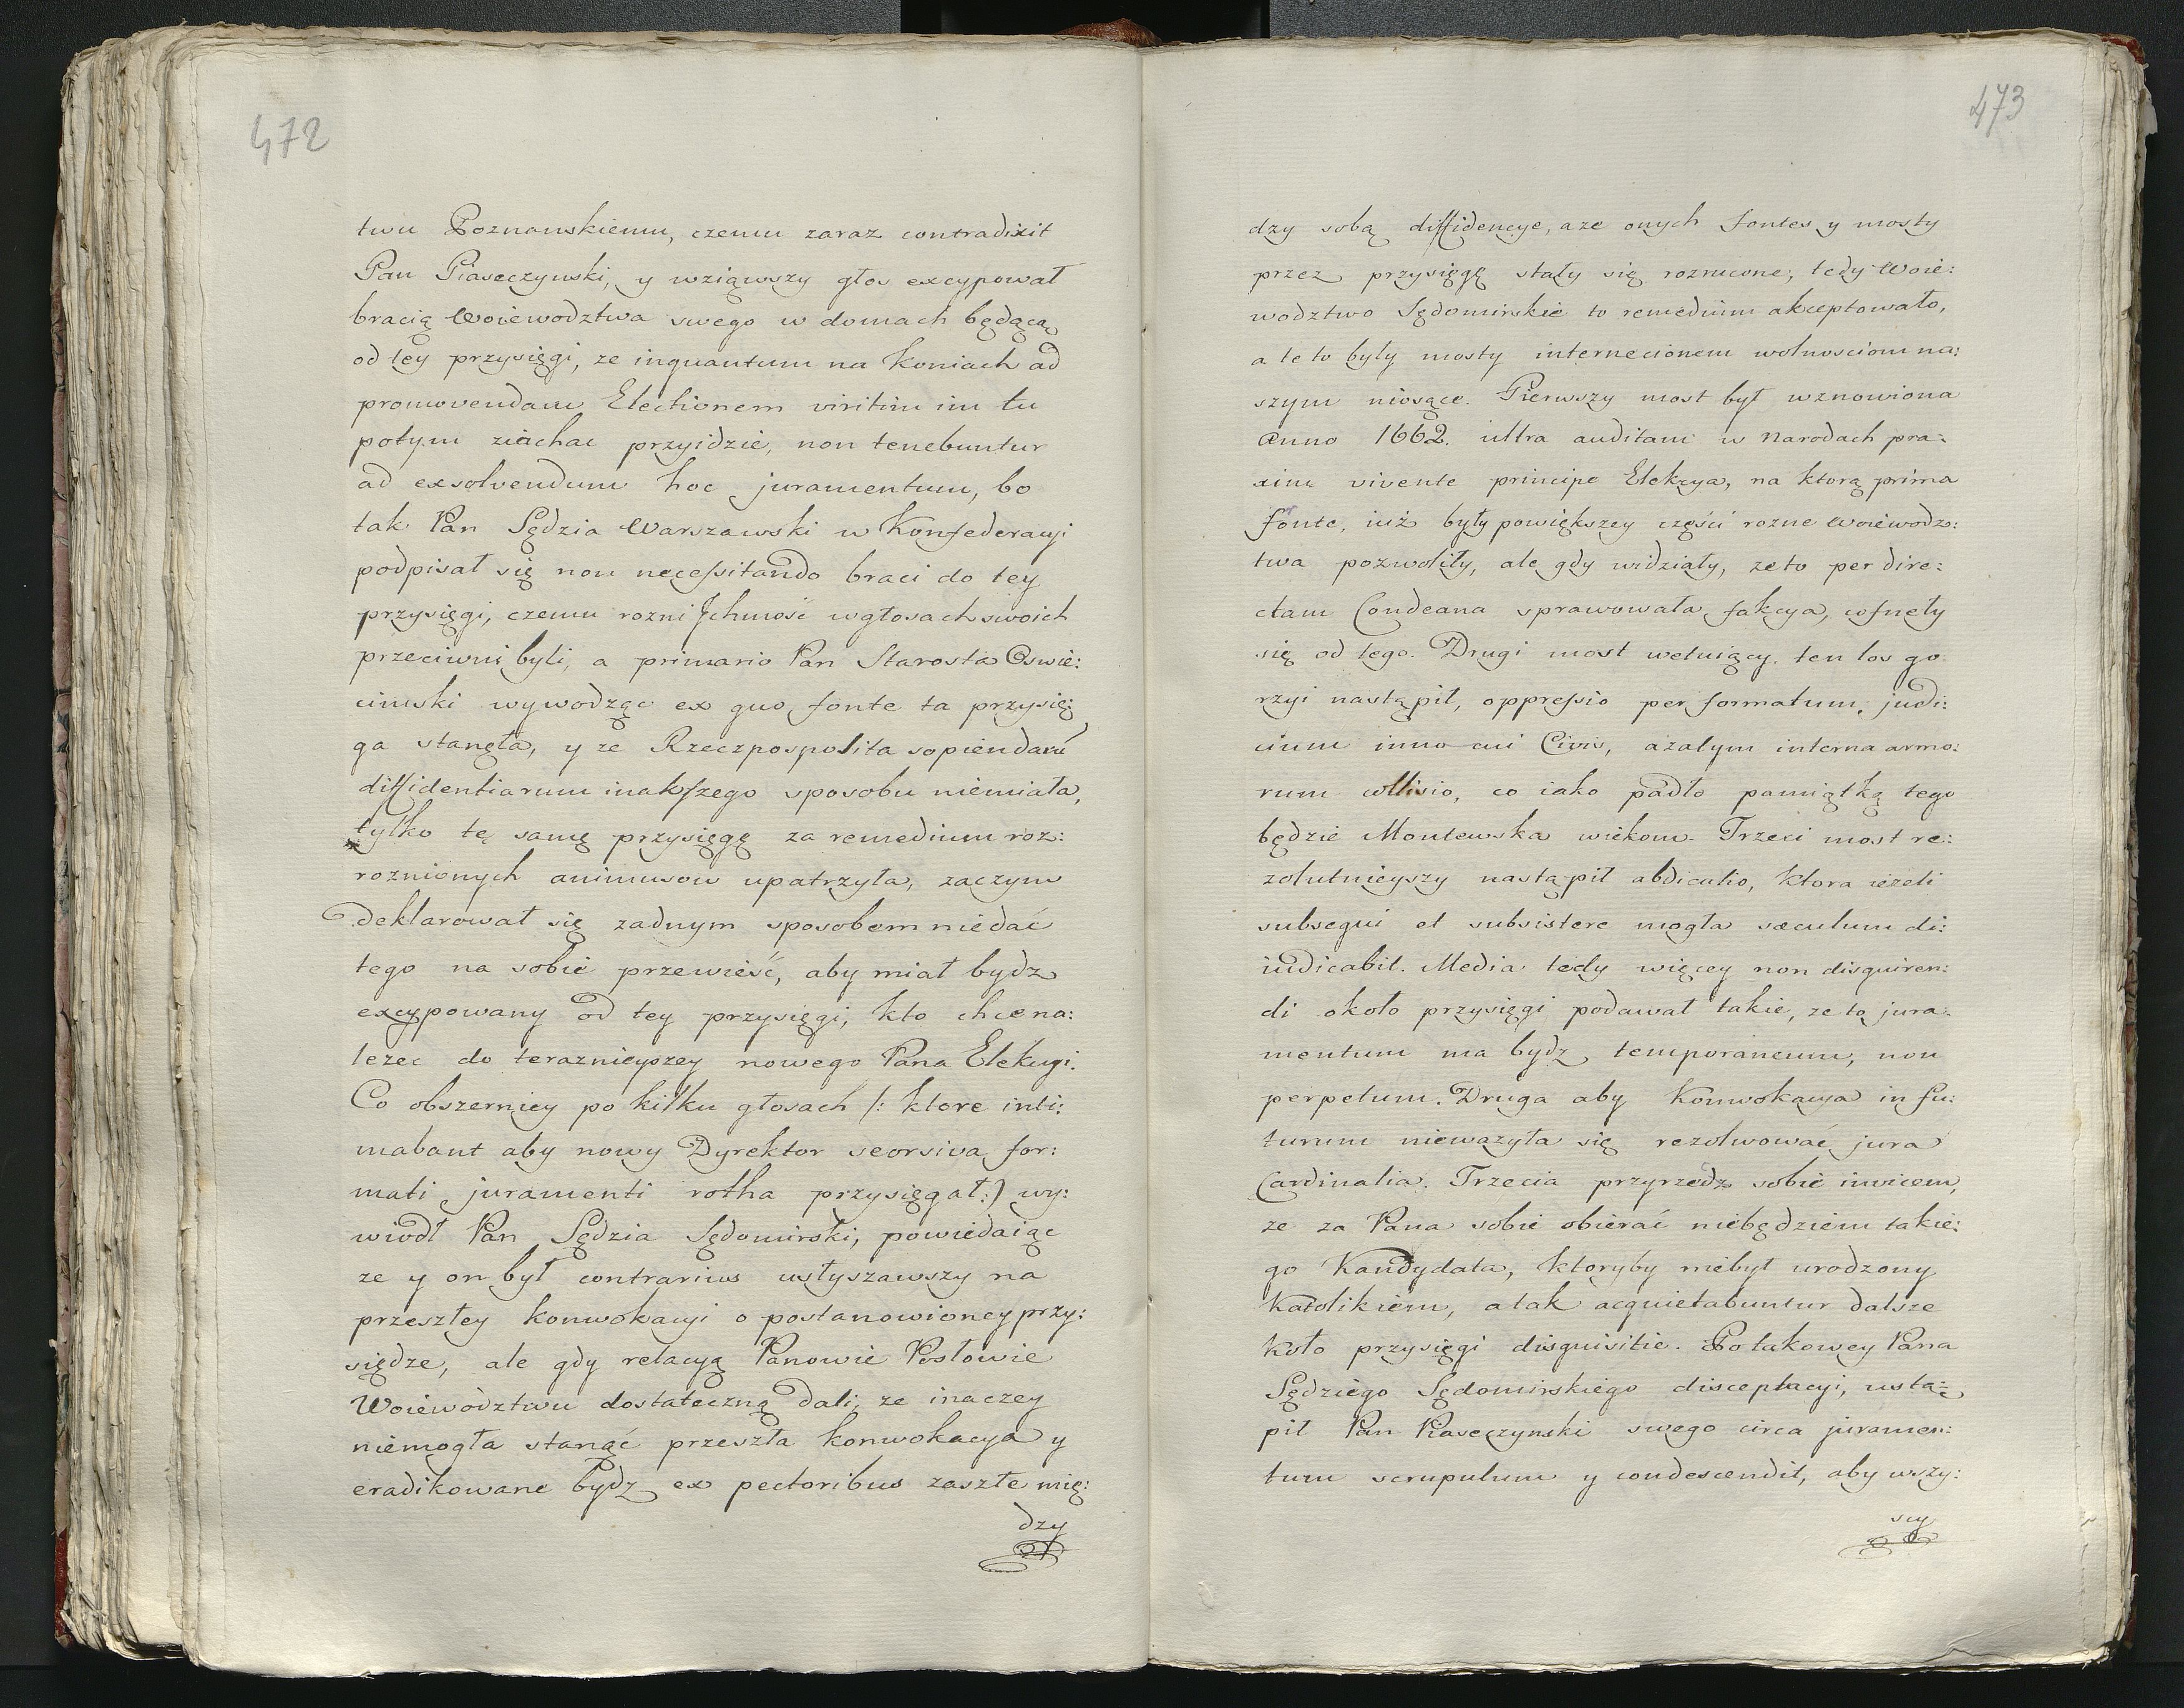 472
twu Poznanskiemu, czemu zaraz contradixit
Pan Piaseczynski, y wziąwszy głos excypował
bracią Woiewodztwa swego w domach będącą
od tey przysięgi, ze inquantum na koniach ad
promovendam Electionem viritim im tu
potym ziachac przyidzie, non tenebuntur
ad exsolvendum hoc juramentum, bo
tak Pan Sędzia Warszawski w Konfederacyi
podpisał się non necessitando braci do tey
przysięgi, czemu rozni Jchmość w głosach swoich
przeciwni byli, a primario Pan Starosta Oswie:
cimski wywodząc ex quo fonte ta przysię:
ga stanęła, y ze Rzeczpospolita sopiendarú
diffidentiarum inakszego sposobu niemiała,
tylko tę samę przysięgę za remedium roz:
roznionych animusow upatrzyła, zaczym
deklarował się zadnym sposobem niedać
tego na sobie przewieść, aby miał bydz
excypowany od tey przysięgi, kto chce na:
lezec do teraznieyszey nowego Pana Elekcyi.
Co obszerniey po kilku głosach /: ktore inti:
mabant aby nowy Dyrektor seorsiva for:
mati juramenti rotha przysięgał:) wy:
wiodł Pan Sędzia Sędomirski, powiedaiąc
ze y on był contrarius usłyszawszy na
przeszłey konwokacyi o postanowioney przy:
siędze, ale gdy relacyą Panowie Posłowie
Woiewodztwu dostateczną dali, ze inaczey
niemogła stanąć przeszła konwokacya y
eradikowane bydz ex pectoribus zaszłe mię:
dzy
473
dzy sobą diffidencye, aze onych fontes y mosty
przez przysięgę stały się rozrucone; tedy Woie:
wodztwo Sędomirskie to remedium akceptowało,
a te to były mosty internecionem wolnosciom na:
szym niosące. Pierwszy most był wznowiona
Anno 1662. ultra auditam w narodach pra:
xim vivente principe Elekcya, na ktorą prima
fonte, iuż były powiększey części rozne Woiewodz:
twa pozwoliły, ale gdy widziały, ze to per dire:
ctam Condeana sprawowała fakcya, cofneły
się od tego. Drugi most wetuiący, ten los go
rzyi nastąpił, oppressio per formatum judi:
cium innocui Civis, azatym interna armo:
rum collisio, co iako padło pamiątką tego
będzie Montewska wiekom. Trzeci most re:
zolutnieyszy nastąpił abdicatio, ktora iezeli
subsequi et subsistere mogła sæculum di:
iudicabit. Media tedy więcey non disquiren:
di około przysięgi podawał takie, ze to jura:
mentum ma bydz temporaneum, non
perpetum. Druga aby Konwokacya in fu:
turum nieważyła się rezolwować jura
Cardinalia. Trzecia przyrzedz sobie invicem,
ze za Pana sobie obierać niebędziem takie:
go Kandydata, ktoryby niebył urodzony
Katolikiem, atak acquietabuntur dalsze
koło przysięgi disquisitie. Po takowey Pana
Sędziego Sędomirskiego disceptacyi, ustą:
pił Pan Piaseczynski swego circa juramen:
tum scrupulum y condescendit, aby wszy:
scy